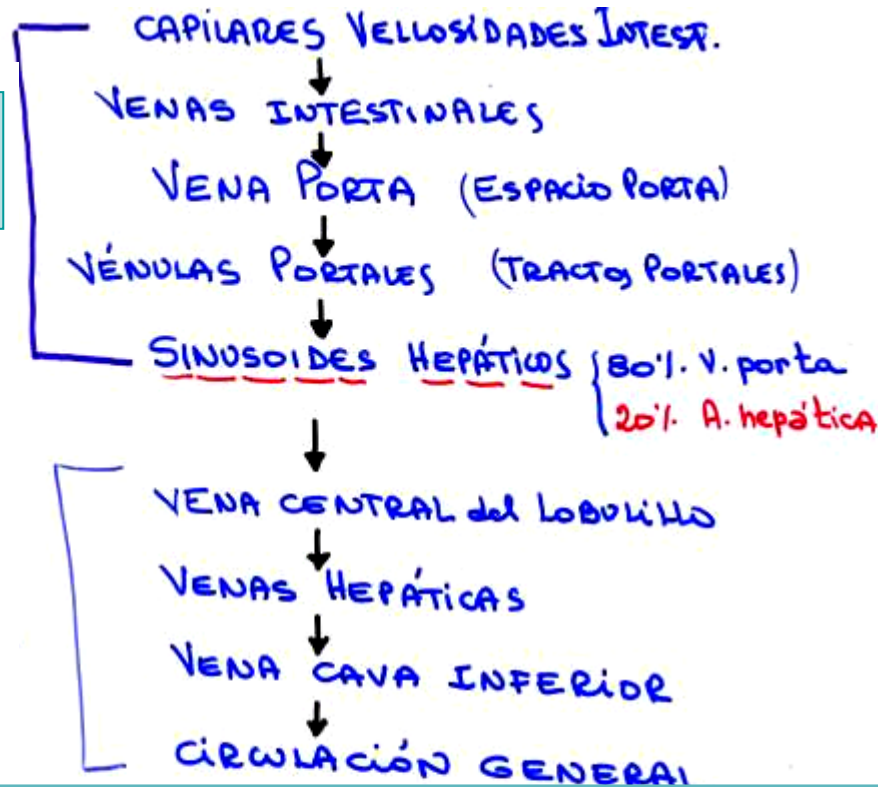 CAPILARES VELLOSIDADES INTEST.
VENAS INTESTINALES
VENA PORTA (ESPACIO PORTA)
VÉNULAS PORTALES (TRACTOS PORTALES)
SINUSOIDES HEPÁTICOS { 80%. V. porta
20%. A. hepática
VENA CENTRAL del LOBULILLO
VENAS HEPÁTICAS
VENA CAVA INFERIOR
CIRCULACIÓN GENERAL